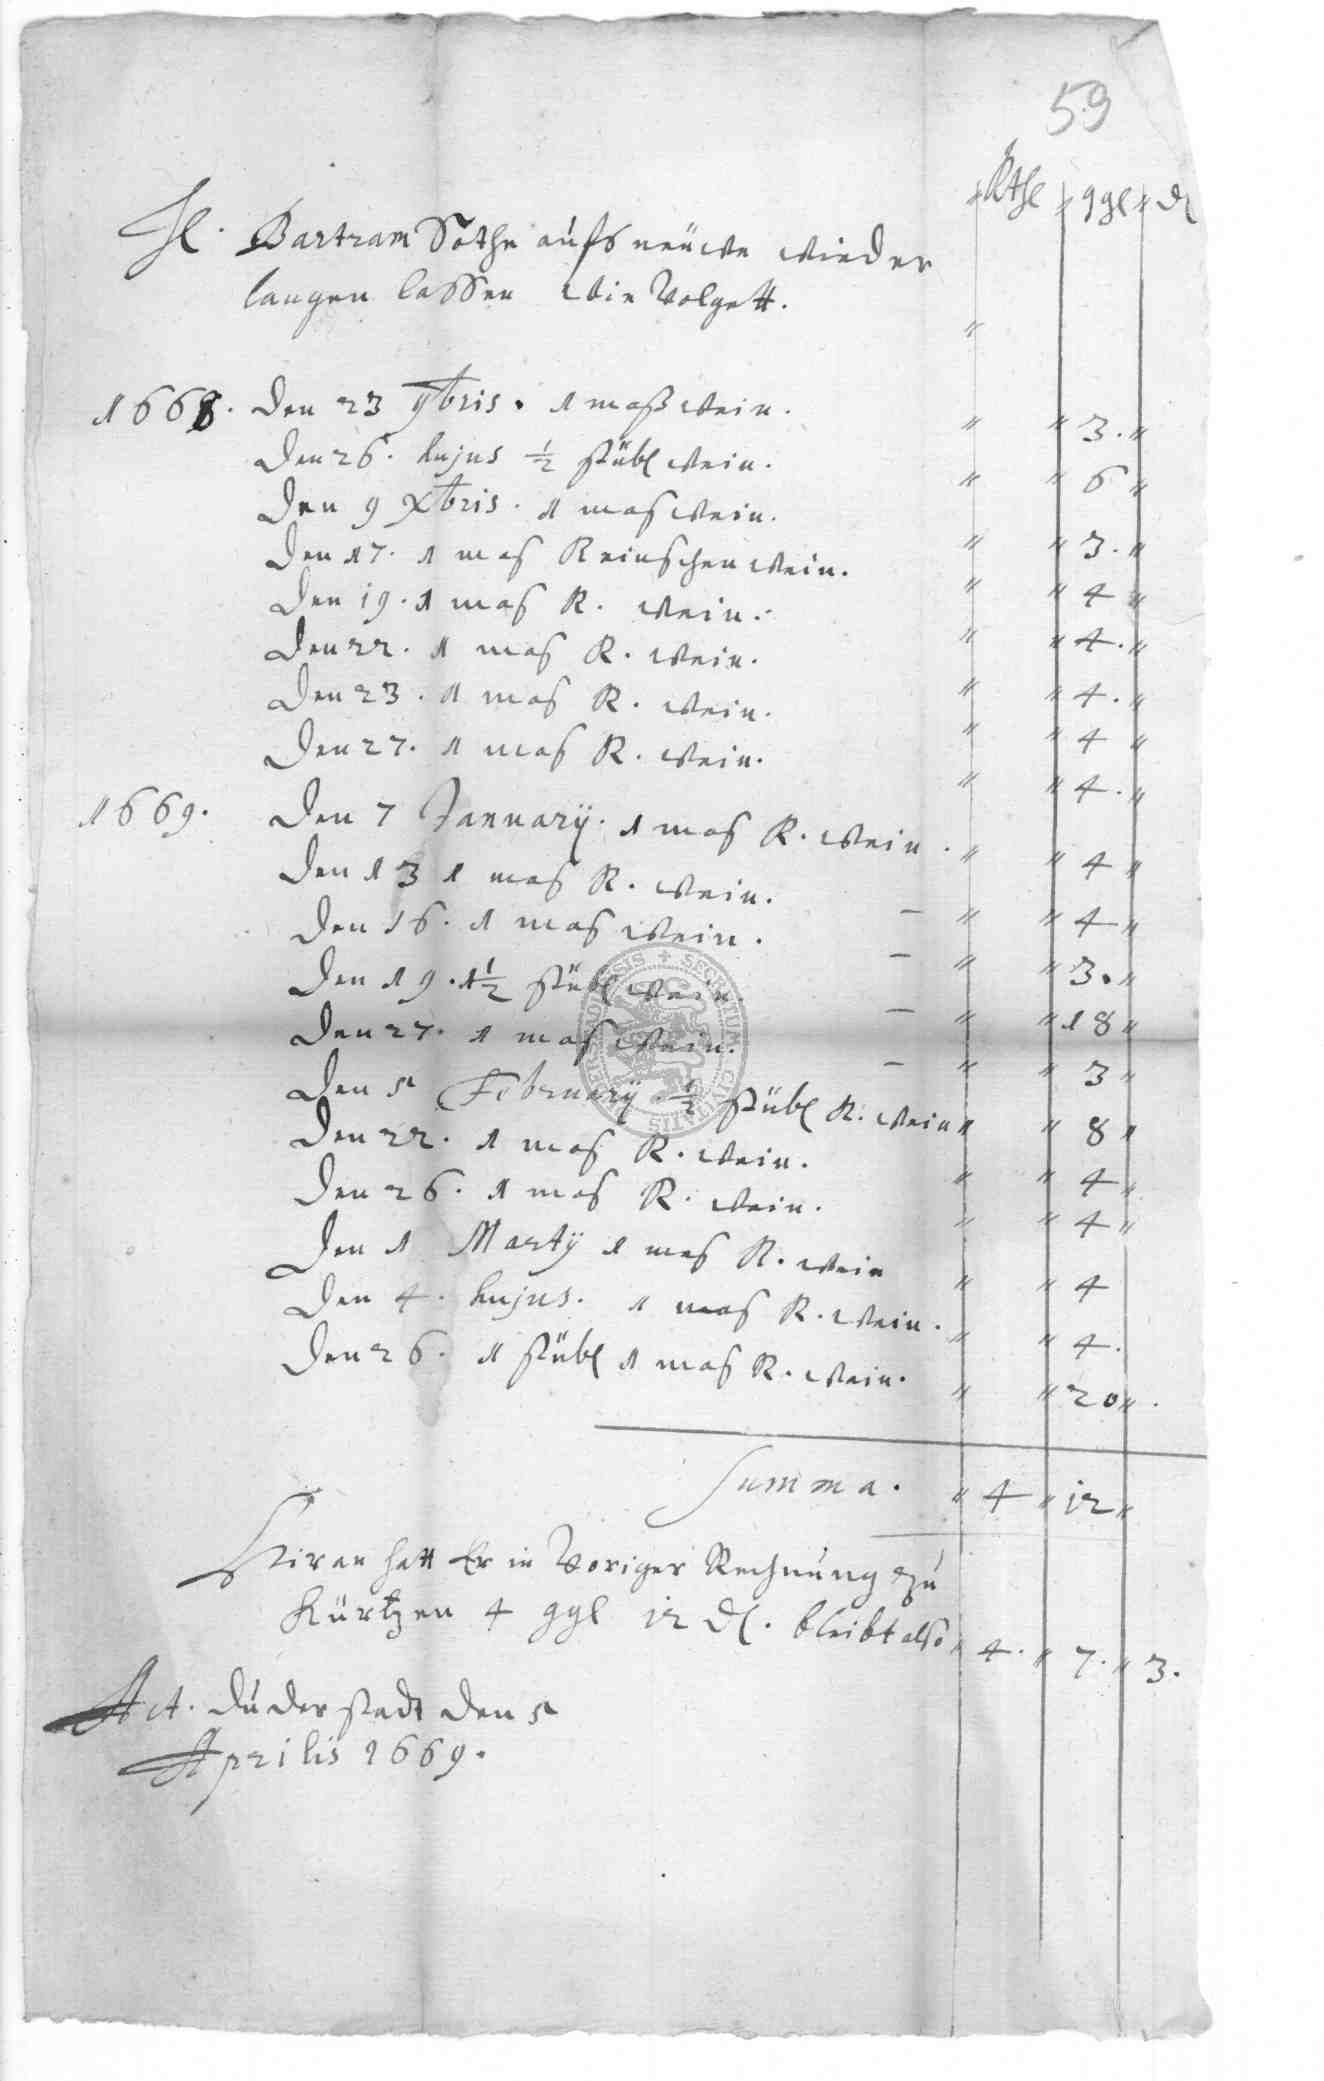 59
Rthl ggl d
H. Bartram Sothe aufs neüwe wieder
langen lassen wie Volgett.
1668. Den 23 9bris. 1 maß wein. " " 3. "
Den 26. hujus ½ stübl wein. " " 6 "
Den 9 Xbris. 1 mas wein. " " 3. "
Den 17. 1 mas Reinschen wein. " " 4 "
Den 19. 1 mas R. wein. " " 4. "
Den 22. 1 mas R. wein. " " 4. "
Den 23. 1 mas R. wein. " " 4 "
Den 27. 1 mas R. wein. " " 4. "
1669. Den 7 January. 1 mas R. wein. " " 4 "
Den 13 1 mas R. wein. – " " 4 "
Den 16. 1 mas wein. – " " 3. "
Den 19. 1½ stübl wein. – " " 18 "
Den 27. 1 mas wein. – " " 3 "
Den 5 February. ½ stübl R. wein " " 8 "
Den 22. 1 mas R. wein. " " 4 "
Den 26. 1 mas R. wein. " " 4 "
Den 1 Marty 1 mas R. wein " " 4
Den 4. hujus. 1 mas R. wein. " " 4.
Den 26. 1 stübl 1 mas R. wein. " " 20 "
Summa. " 4 " 12 "
Hiran hatt Er in Voriger Rechnung zu
Kürtzen 4 ggl 12 d. bleibt also " 4. " 7. " 3.
Act. Duderstadt den 5
Aprilis 1669.
SECRETUM CIVITATIS